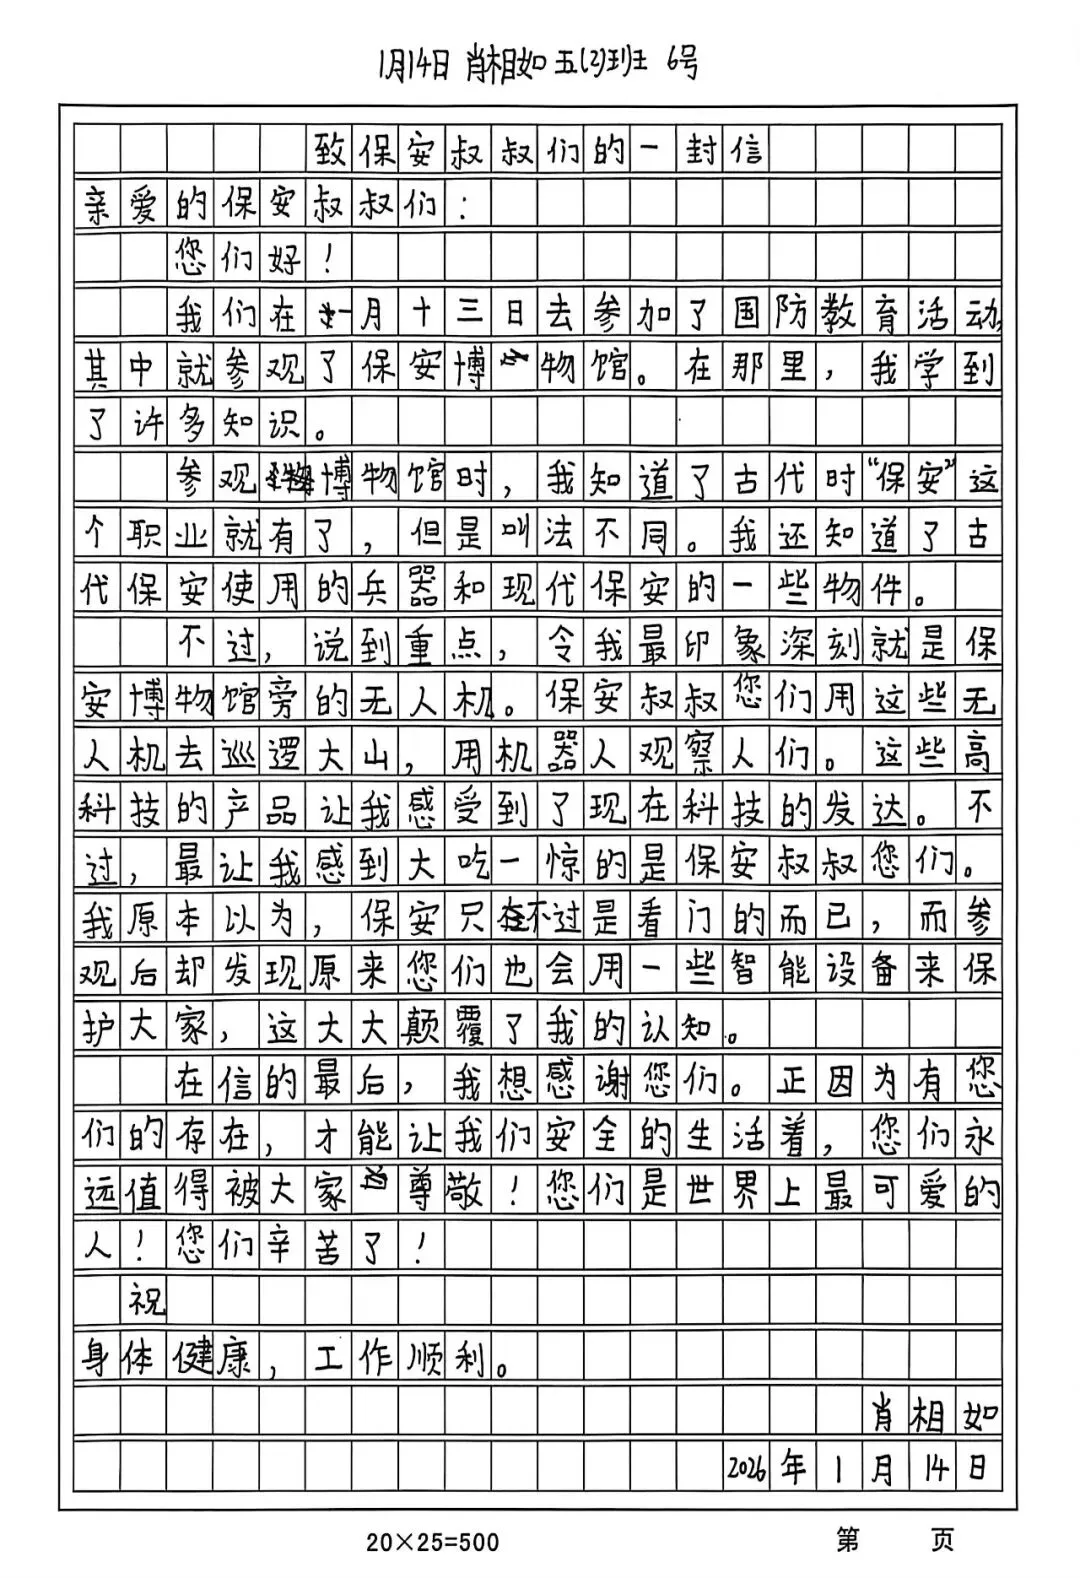 1月14日 肖相如 五(2)班 6号
致保安叔叔们的一封信
亲爱的保安叔叔们：
您们好！
我们在一月十三日去参加了国防教育活动，
其中就参观了保安博物馆。在那里，我学到
了许多知识。
参观博物馆时，我知道了古代时“保安”这
个职业就有了，但是叫法不同。我还知道了古
代保安使用的兵器和现代保安的一些物件。
不过，说到重点，令我最印象深刻就是保
安博物馆旁的无人机。保安叔叔您们用这些无
人机去巡逻大山，用机器人观察人们。这些高
科技的产品让我感受到了现在科技的发达。不
过，最让我感到大吃一惊的是保安叔叔您们。
我原本以为，保安只不过是看门的而已，而参
观后却发现原来您们也会用一些智能设备来保
护大家，这大大颠覆了我的认知。
在信的最后，我想感谢您们。正因为有您
们的存在，才能让我们安全的生活着，您们永
远值得被大家尊敬！您们是世界上最可爱的
人！您们辛苦了！
祝
身体健康，工作顺利。
肖相如
2026年1月14日
20×25=500 第 页